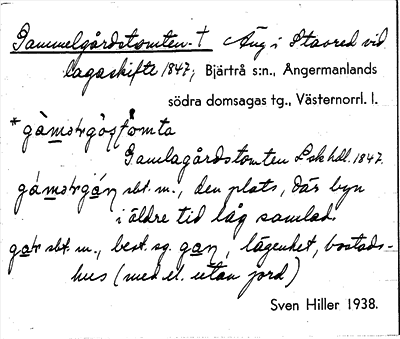 Gammelgårdstomten. † Äng i Stavred vid
lagaskifte 1847, Bjärtrå s:n., Ångermanlands
södra domsagas tg., Västernorrl. l.
Gamlagårdstomten Lsk hdl. 1847.
sbt. m., den plats, där byn
i äldre tid låg samlad.
sbt. m., best. sg. gan, lägenhet, bostads-
hus (med el. utan jord)
Sven Hiller 1938.